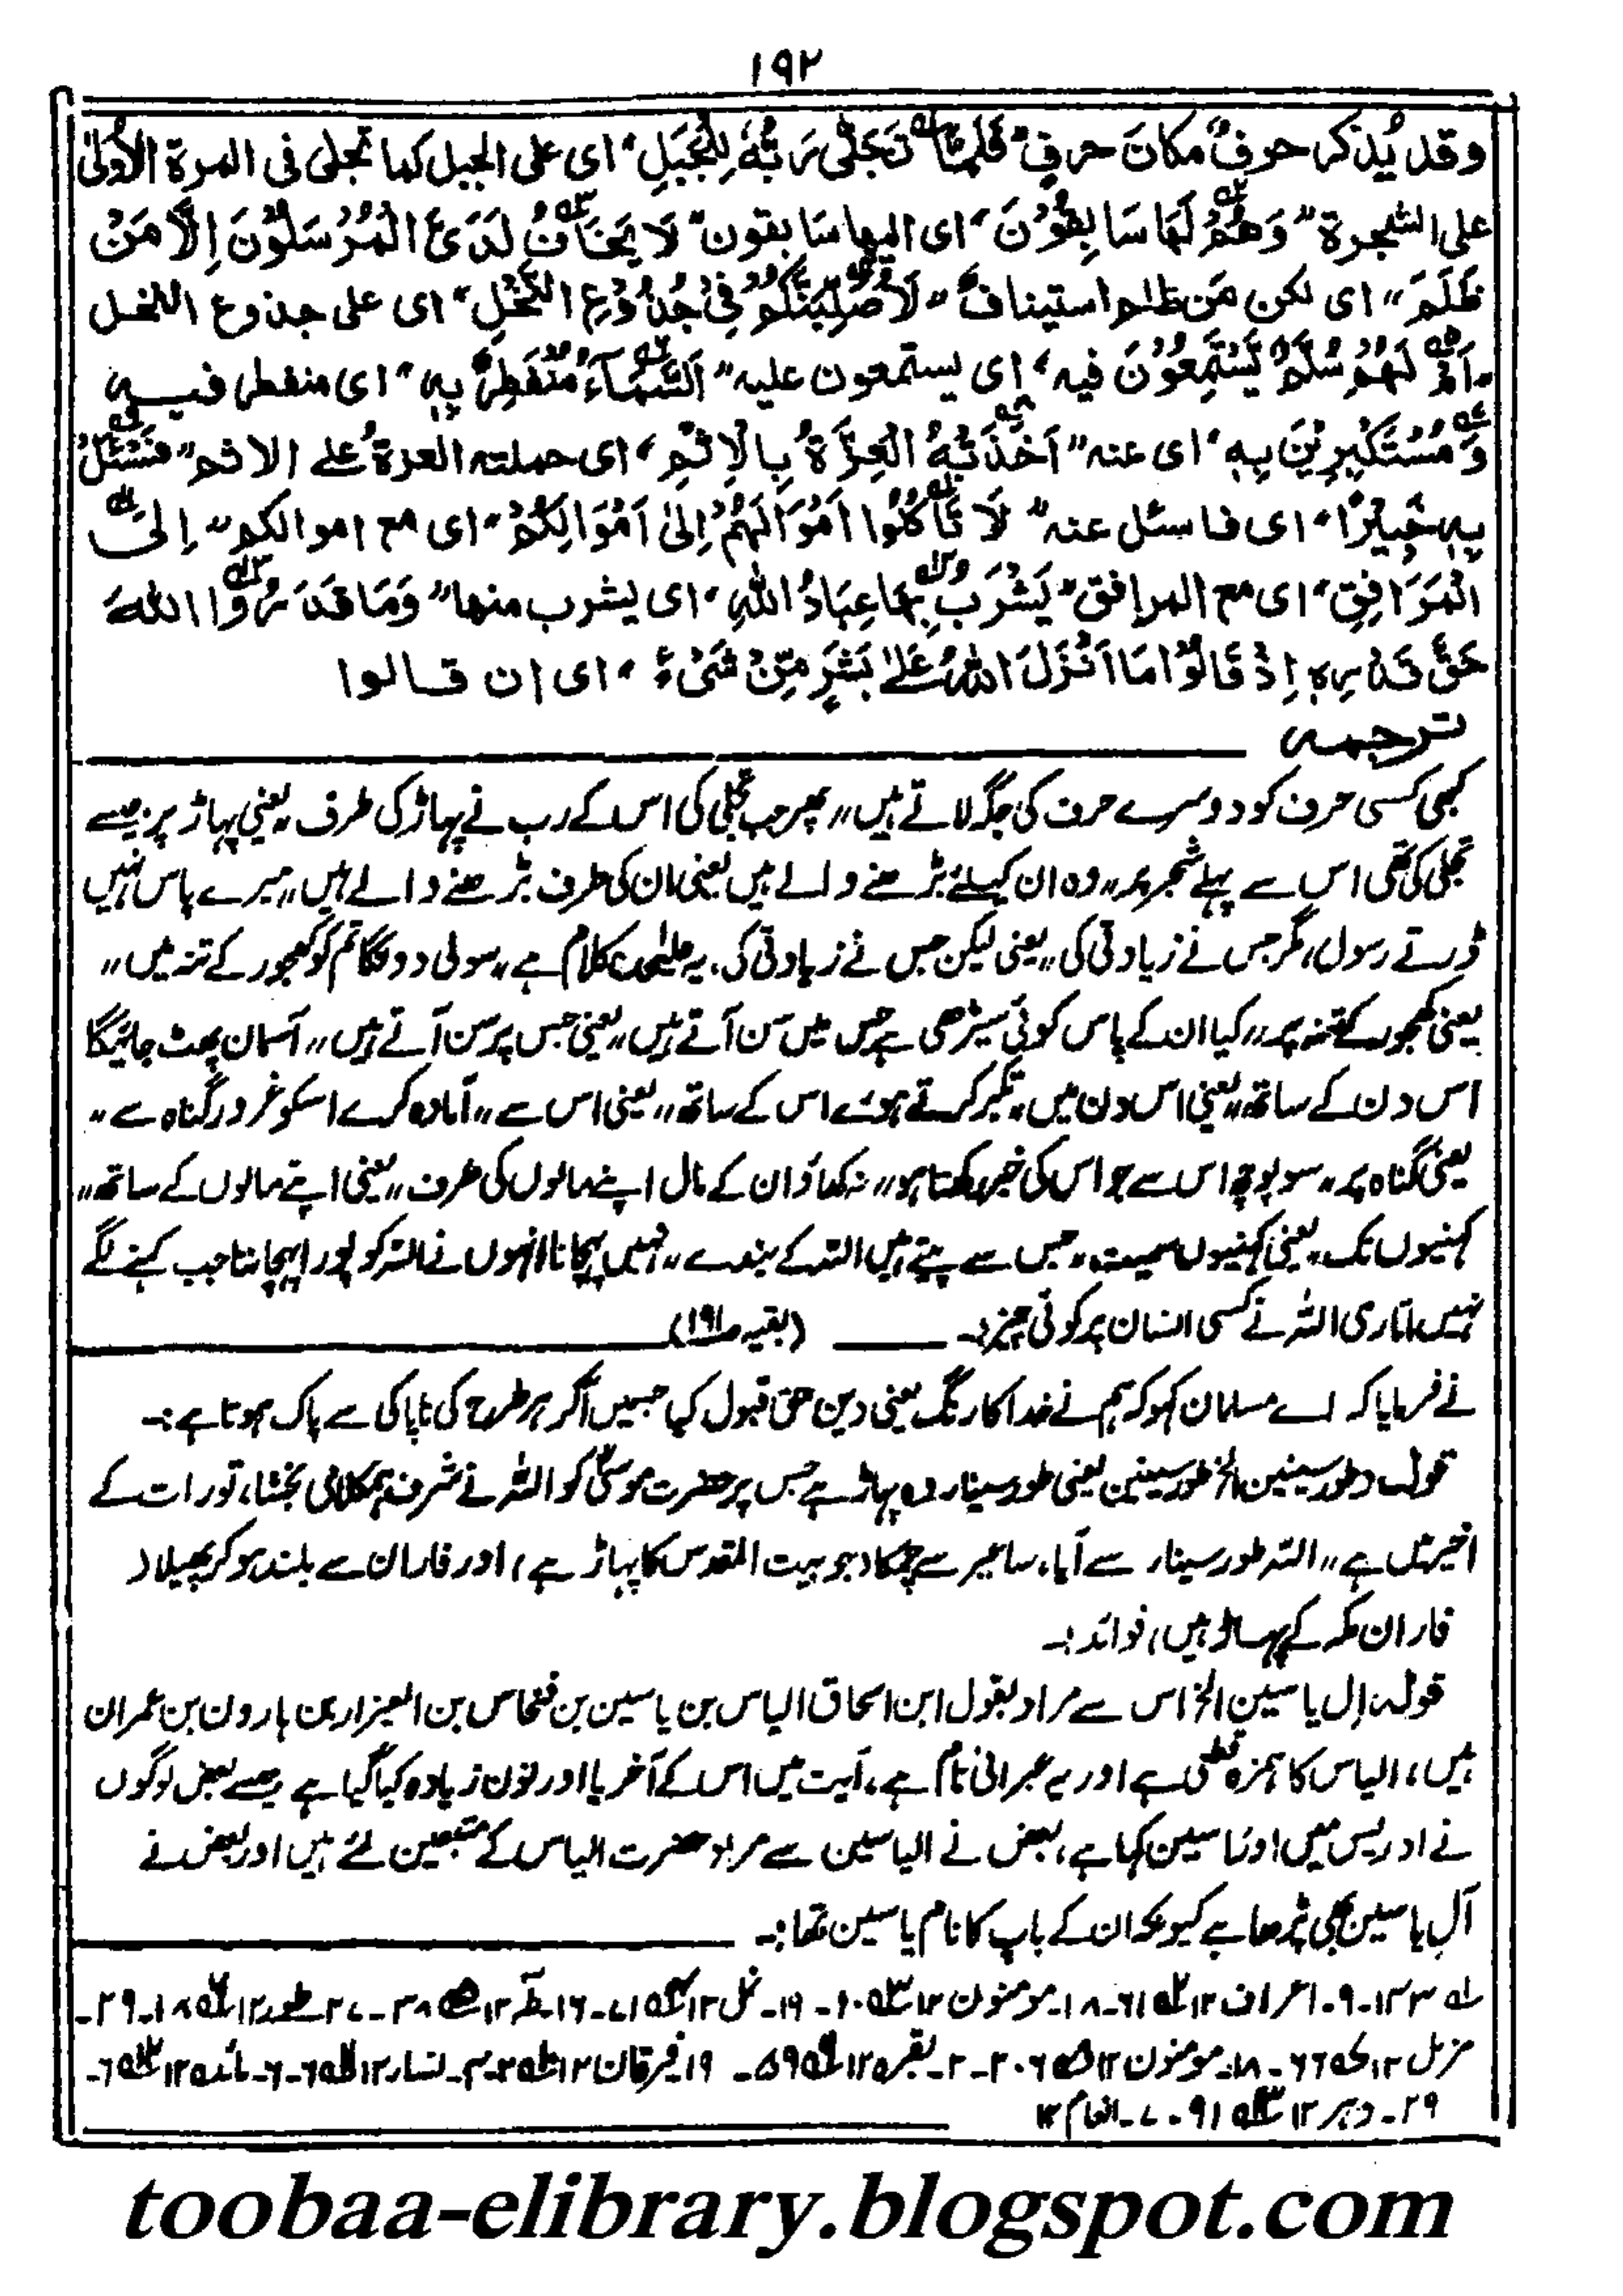 ۱۹۲
وقد يُذكر حرفٌ مكانَ حرفٍ "فَلَمَّا تَجَلّٰى رَبُّهٗ لِلْجَبَلِ" اى على الجبل كما تجلى فى المرة الاُولىٰ
على الشجرة "وَهُمْ لَهَا سَابِقُوْنَ" اى اليها سَابقون "لَا يَخَافُ لَدَىَّ الْمُرْسَلُوْنَ اِلَّا مَنْ
ظَلَمَ" اى لكن مَن ظلم استينافٌ "لَاُصَلِّبَنَّكُمْ فِىْ جُذُوْعِ النَّخْلِ" اى على جذوع النخل
"اَمْ لَهُمْ سُلَّمٌ يَّسْتَمِعُوْنَ فيه" اى يستمعون عليه "اَلسَّمَآءُ مُنْفَطِرٌ بِهٖ" اى منفطر فيه
"مُسْتَكْبِرِيْنَ بِهٖ" اى عنه "اَخَذَتْهُ الْعِزَّةُ بِالْاِثْمِ" اى حملته العزةُ على الاثم "فَسْئَلْ
بِهٖ خَبِيْرًا" اى فاسئل عنه "لَا تَاْكُلُوْا اَمْوَالَهُمْ اِلىٰ اَمْوَالِكُمْ" اى مع اموالكم "اِلَى
الْمَرَافِقِ" اى مع المرافق "يَشْرَبُ بِهَا عِبَادُ اللّٰهِ" اى يشرب منها "وَمَا قَدَرُوا اللّٰهَ
حَقَّ قَدْرِهٖ اِذْ قَالُوْا مَا اَنْزَلَ اللّٰهُ عَلىٰ بَشَرٍ مِّنْ شَىْءٍ" اى ان قالوا
ترجمہ
کبھی کسی حرف کو دوسرے حرف کی جگہ لاتے ہیں "پھر جب تجلی کی اس کے رب نے پہاڑ کی طرف" یعنی پہاڑ پر جیسے
تجلی کی تھی اس سے پہلے شجر پر "وہ ان کیلئے بڑھنے والے ہیں یعنی ان کی طرف بڑھنے والے ہیں "میرے پاس نہیں
ڈرتے رسول، مگر جس نے زیادتی کی" یعنی لیکن جس نے زیادتی کی، یہ علیٰحدہ کلام ہے "سولی دوں گا تم کو کھجور کے تنہ میں"
یعنی کھجور کے تنہ پر "کیا ان کے پاس کوئی سیڑھی ہے جس میں سن آتے ہیں" یعنی جس پر سن آتے ہیں "آسمان پھٹ جائیگا
اس دن کے ساتھ" یعنی اس دن میں "تکبر کرتے ہوئے اس کے ساتھ" یعنی اس سے "آمادہ کرے اسکو غرور گناہ سے"
یعنی گناہ پر "سو پوچھ اس سے جو اس کی خبر رکھتا ہو" "نہ کھاؤ ان کے مال اپنے مالوں کی طرف" یعنی اپنے مالوں کے ساتھ"
کہنیوں تک" یعنی کہنیوں سمیت "جس سے پیتے ہیں اللہ کے بندے" "نہیں پہچانا انہوں نے اللہ کو پورا پہچاننا جب کہنے لگے
نہیں اتاری اللہ نے کسی انسان پر کوئی چیز:۔ (بقیہ ص۱۹۱)
نے فرمایا کہ اے مسلمان کہو کہ ہم نے خدا کا رنگ یعنی دین حق قبول کیا جسمیں آکر ہر طرح کی ناپاکی سے پاک ہوتا ہے:۔
قولہ وطور سینین الخ طور سینین یعنی طور سینار وہ پہاڑ ہے جس پر حضرت موسیٰؑ کو اللہ نے شرف ہمکلامی بخشا، تورات کے
اخیر میں ہے "اللہ طور سینار سے آیا، ساعیر سے چمکا (جو بیت المقدس کا پہاڑ ہے) اور فاران سے بلند ہو کر پھیلا (
فاران مکہ کے پہاڑ ہیں) فوائد:۔
قولہ اِل یاسین الخ اس سے مراد بقول ابن اسحاق الیاس بن یاسین بن فنحاس بن العیزار بن ہارون بن عمران
ہیں، الیاس کا ہمزہ قطعی ہے اور یہ عبرانی نام ہے، آیت میں اس کے آخر یا اور نون زیادہ کیا گیا ہے جیسے بعض لوگوں
نے ادریس میں ادراسین کہا ہے، بعض نے الیاسین سے مراد حضرت الیاس کے متبعین لئے ہیں اور بعض نے
آل یاسین بھی پڑھا ہے کیونکہ ان کے باپ کا نام یاسین تھا:۔
۹۔ اعراف ۱۲ ۱۸۔ مومنون ۱۲ ۱۹۔ نمل ۱۲ ۱۶۔ طٰہٰ ۱۲ ۲۷۔ طور ۱۲ ۲۹۔
مزمل ۱۲ ۱۸۔ مومنون ۱۲ ۲۔ بقرہ ۱۲ ۱۹۔ فرقان ۱۲ ۴۔ نسار ۱۲ ۶۔ مائدہ ۱۲
۲۹۔ دہر ۱۲ ۷۔ انعام ۱۲
toobaa-elibrary.blogspot.com